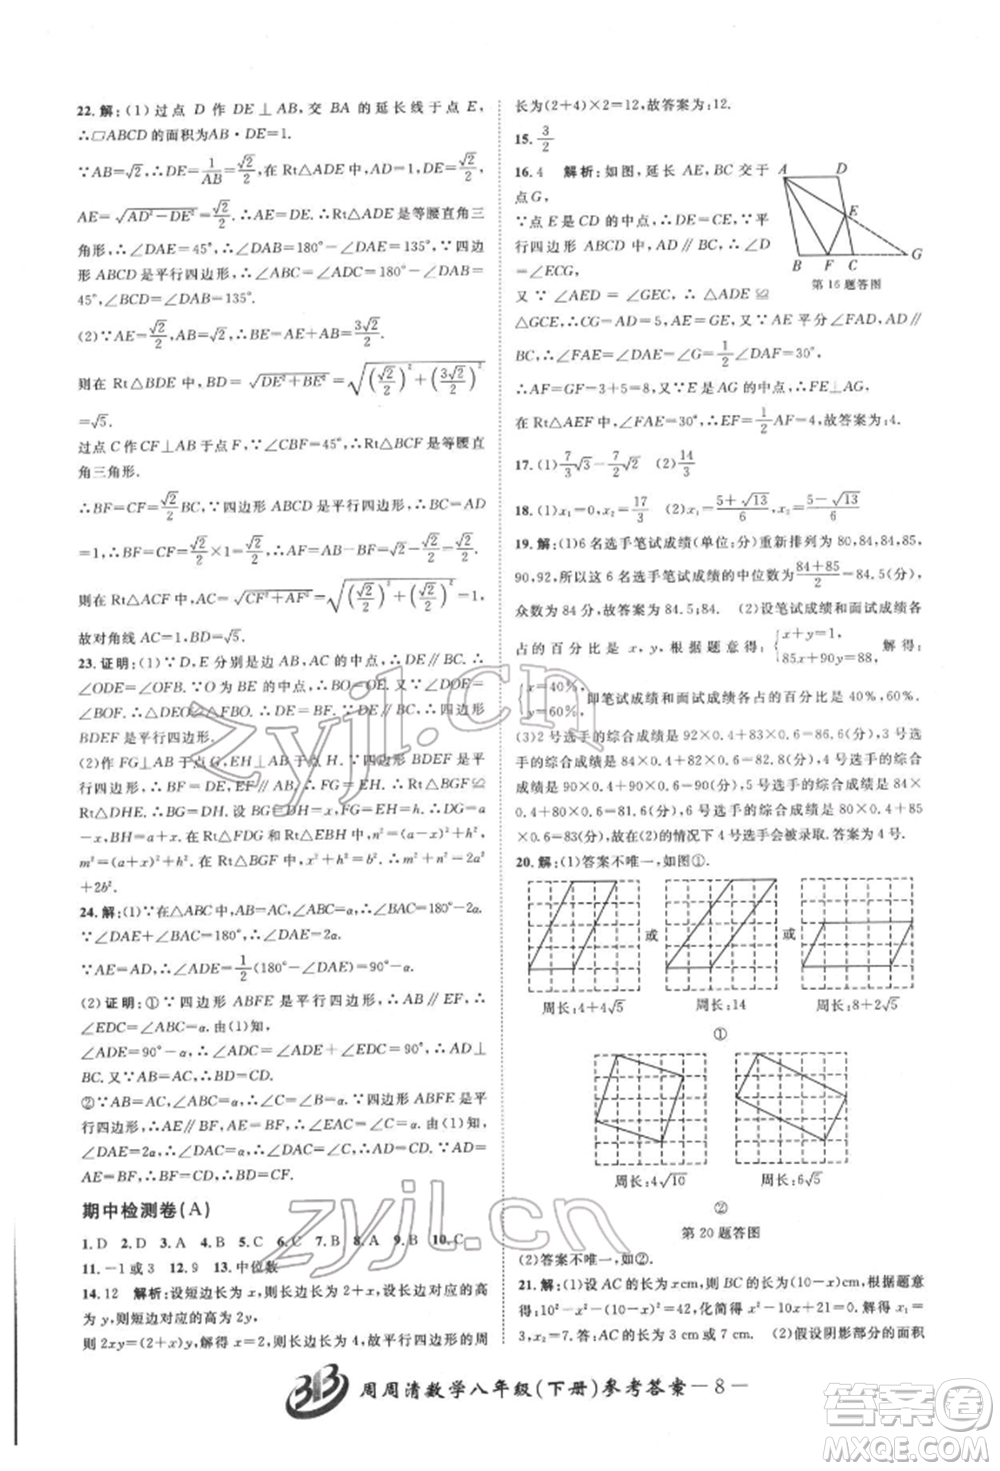 22.解:(1)过点 D 作 DE⊥AB,交 BA 的延长线于点 E,
∴▱ABCD 的面积为AB·DE=1.
∵AB=√2,∴DE=1/AB=√2/2,∵在 Rt△ADE 中,AD=1,
AE=√(AD²-DE²)=√2/2,∴Rt△ADE 是等腰直角三
角形,∴∠DAE=45°,∴∠DAB=135°,∵四边形
ABCD 是平行四边形,∴∠ABC=180°-∠DAB=
45°,∴∠BCD=∠DAB=135°.
(2)∵AE=√2/2,∴BE=AE+AB=3√2/2,
则在 Rt△BDE 中,BD=√(DE²+BE²)=√((√2/2)²+(3√2/2)²)
=√5.
过点 C 作 CF⊥AB 于点 F,∵∠CBF=45°,∴Rt△BCF 是等腰直
角三角形.
∴BF=CF=√2/2BC,∵四边形 ABCD 是平行四边形,∴BC=AD
=1,∴BF=CF=√2/2×1=√2/2,∴AF=AB-BF=√2/2,
∴在 Rt△ACF 中,AC=√(CF²+AF²)=√((√2/2)²+(√2/2)²)=1,
故对角线 AC=1,BD=√5.
23.证明:(1)∵D,E 分别是边 AB,AC 的中点,∴DE∥BC,∴
∠ODE=∠OFB,∵O 是边 BE 的中点,∴BO=EO,又∵∠EOD=
∠BOF,∴△DEO≌△FBO,∴DE=BF,又∵DE∥BF,∴四边形
BDEF 是平行四边形.
(2)作 FG⊥AB 于点 G,EH⊥AB 于点 H,∵四边形 BDEF 是平
行四边形,∴DE=BF,∠ADE=∠ABF,∴Rt△BGF≌
Rt△DHE,∴BG=DH.设 BG=DH=x,FG=EH=h,则 DG=a
-x,BH=a+x,在 Rt△FDG 和 Rt△EBH 中,n²=(a-x)²+h²,
m²=(a+x)²+h².在 Rt△BGF 中,b²=x²+h²,∴m²+n²=2a²
+2b².
24.解:(1)∵在△ABC 中,AB=AC,∠ABC=α,∴∠BAC=180°-2
α,∵∠DAE+∠BAC=180°,∴∠DAE=2α,
∵AE=AD,∴∠ADE=1/2(180°-∠DAE)=90°-α.
(2)证明:①∵四边形 ABFE 是平行四边形,∴AB∥EF,∴
∠EDC=∠ABC=α,由(1)知,
∠ADE=90°-α,∴∠ADC=∠ADE+∠EDC=90°,∴AD⊥
BC.∵AB=AC,∴BD=CD.
②∵AB=AC,∠ABC=α,∴∠C=α,∵四边形 ABFE 是平行四边
形,∴AE∥BF,AE=BF,∴∠EAC=∠C=α,由(1)知,
∠DAE=2α,∴∠DAC=α,∴∠DAC=∠C,∴AD=CD.∵AD
=AE=BF,∴BF=CD,∴BD=CF.
期中检测卷(A)
1.D 2.D 3.A 4.B 5.B 6.C 7.C 8.B 9.B 10.C
11.-1或3 12.9 13.中位数
14.12 解析:设短边长为 x,则长边长为 2+x,设长边对应的高
为 y,则短边对应的高为 2y,
则 2xy=(2+x)y,解得 x=2,则长边长为 4,故平行四边形的周
长为(2+4)×2=12,故答案为:12.
15.3/2
16.4 解析:如图,延长 AE,BC 交于
点 G,
∵点 E 是 CD 的中点,∴DE=CE,∵平
行四边形 ABCD 中,AD∥BC,∴∠D
=∠ECG,
又∵∠AED=∠GEC,∴△ADE≌
△GCE,∴CG=AD=5,AE=GE,又∵AE 平分∠FAD,AD∥
BC,∴∠FAE=∠DAE=∠G=1/2∠DAF=30°,
∴AF=GF=3+5=8,又∵E 是 AG 的中点,∴FE⊥AG,
在 Rt△AEF 中,∠FAE=30°,∴EF=1/2AF=4,故答案为:4.
A D E B F C G
第 16 题答图
17.(1)7/3√3-7/2√2 (2)14/3
18.(1)x₁=0,x₂=17/3 (2)x₁=(5+√13)/6,x₂=(5-√13)/6
19.解:(1)6 名选手笔试成绩(单位:分)重新排列为 80,84,84,85,
90,92,所以这 6 名选手笔试成绩的中位数是(84+85)/2=84.5(分),
众数为 84 分,故答案为 84.5;84. (2)设笔试成绩和面试成绩各
占的百分比是 x,y,根据题意得:{x+y=1, 85x+90y=88, 解得:
{x=40%, y=60%, 即笔试成绩和面试成绩各占的百分比是 40%,60%.
(3)2 号选手的综合成绩是 92×0.4+88×0.6=89.6(分),3 号选
手的综合成绩是 84×0.4+82×0.6=82.8(分),4 号选手的综合
成绩是 90×0.4+90×0.6=90(分),5 号选手的综合成绩是 84×
0.4+80×0.6=81.6(分),6 号选手的综合成绩是 80×0.4+85
×0.6=83(分),则(2)的情况下 4 号选手会被录取.答案为 4 号.
20.解:(1)答案不唯一,如图①.
或 或
周长:4+4√5 周长:14 周长:8+2√5
①
周长:4√10 周长:6√5
②
第 20 题答图
(2)答案不唯一,如图②.
21.解:(1)设 AC 的长为 x cm,则 BC 的长为(10-x)cm,根据题意
得:10²-x²-(10-x)²=2x(10-x),化简得:x²-10x+21=0,解得 x₁=
3,x₂=7.答:AC 的长为 3 cm 或 7 cm. (2)假设阴影部分的面积
周周清数学八年级(下册)参考答案—8—
zyjl.cn
zyjl.cn
答案圈
MXQE.COM